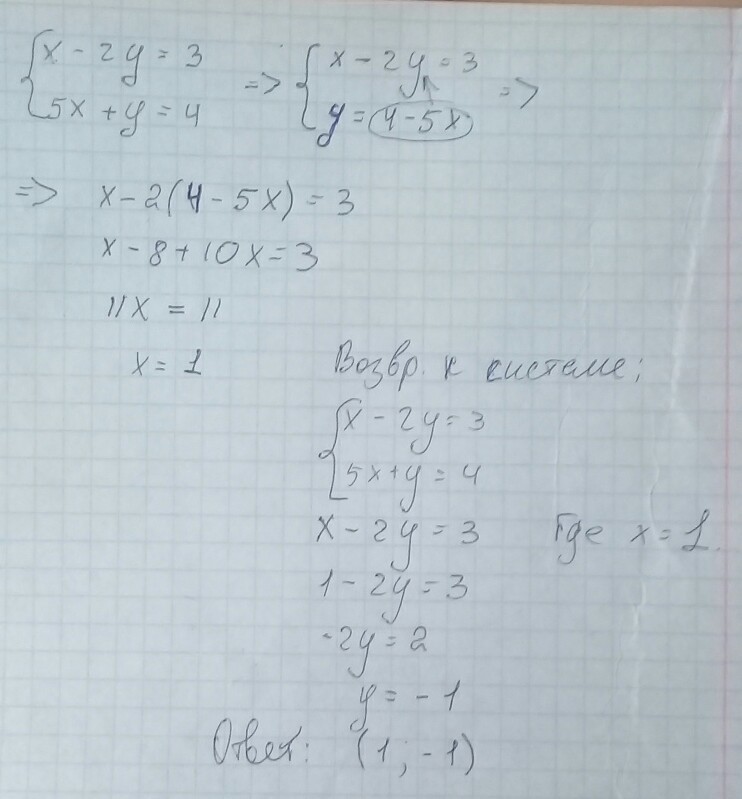 {x - 2y = 3 => {x - 2y = 3 =>
5x + y = 4 y = 4 - 5x
=> x - 2(4 - 5x) = 3
x - 8 + 10x = 3
11x = 11
x = 1 Возвр. к системе:
{x - 2y = 3
5x + y = 4
x - 2y = 3 Где x = 1.
1 - 2y = 3
-2y = 2
y = -1
Ответ: (1; -1)